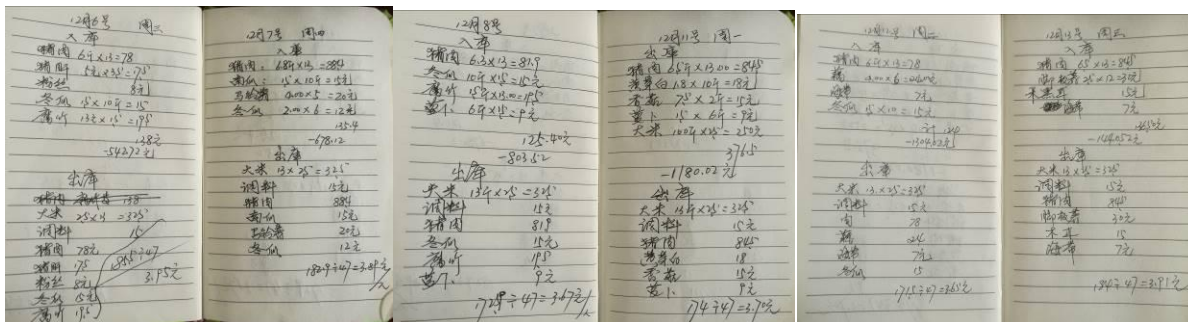 12月6号 周三
入库
猪肉 6斤×13=78
8元
冬瓜 15×10斤=15
138元
-542.72元
出库
大米 25×13=325
调料 15
猪肉 78元
粉丝 8元
冬瓜 15元
3.95元
12月7号 周四
入库
猪肉: 68斤×13=884
南瓜: 15×10斤=15元
4.00×5=20元
冬瓜 2.00×6=12元
135.4
-678.12
出库
大米 13×25=325
调料 15元
猪肉 884
南瓜 15元
20元
冬瓜 12元
182.9÷47=3.89元/人
12月8号
入库
猪肉 6.3×13=819
冬瓜 10斤×15=15元
15斤×13.00=195
萝卜 6斤×15=9元
125.40元
-803.52
出库
大米 13斤×25=325
调料 15元
猪肉 819
冬瓜 15元
195
萝卜 9元
172.9÷47=3.67元/人
12月11号 周一
出库
猪肉 65斤×13.00=845
茭白 1.8×10斤=18元
香菇 75×2斤=15元
萝卜 15×6斤=9元
大米 100斤×25=250元
376.5
-1180.02元
出库
大米 13斤×25=325
调料 15元
猪肉 845
茭白 18
香菇 15元
萝卜 9元
174÷47=3.70元
12月12号 周二
入库
猪肉 6斤×13=78
4.00×6=24.00元
海带 7元
冬瓜 15×10=15元
计 124
-1304.02元
出库
大米 13×25=325
调料 15元
肉 78
24
海带 7元
冬瓜 15
171.5÷47=3.65元
12月13号 周三
入库
猪肉 65×13=845
25×12=30元
木耳 15元
海带 7元
出库
大米 13×25=325
调料 15元
猪肉 845
30元
木耳 15
海带 7元
184÷47=3.91元